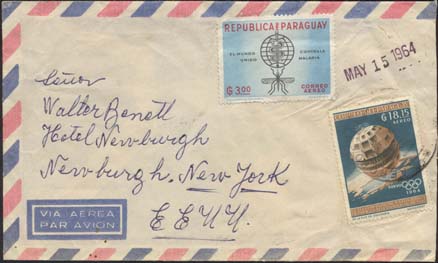 REPUBLICA del PARAGUAY
EL MUNDO UNIDO
CONTRA LA MALARIA
₲ 3.00
CORREO AEREO
MAY 15 1964
₲ 18.15
AEREO
1964
Señor
Walter Benett
Hotel Newburgh
Newburgh. New York
E E U U.
VIA AEREA
PAR AVION